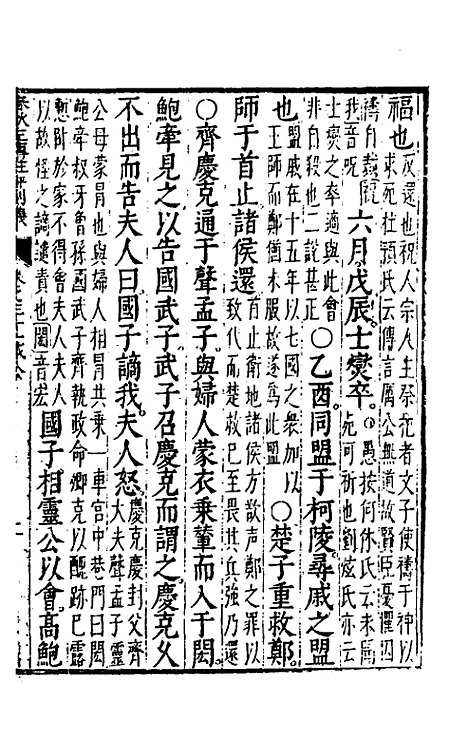 福也
反還也祝人宗人主祭祀者文子使禱于神以
求死杜預氏云傳言厲公無道故賢臣憂懼因
禱自裁
我音呪
六月戊辰士燮卒
○愚按何休氏云未聞
死可祈也劉炫氏亦云
士燮之卒適與此會
非自殺也二說甚正
○乙酉同盟于柯陵尋戚之盟
也
盟戚在十五年以七國之衆加以
王師而鄭猶未服故遂爲此盟
○楚子重救鄭
師于首止諸侯還
首止衛地諸侯方欲声鄭之罪以
致伐而楚救已至畏其兵強乃還
○齊慶克通于聲孟子與婦人蒙衣乘輦而入于閎
鮑牽見之以告國武子武子召慶克而謂之慶克父
不出而告夫人曰國子謫我夫人怒
慶克慶封父齊
大夫聲孟子靈
公母蒙冒也與婦人相冒共乗一車宮中巷門曰閎
鮑牽叔牙曾孫國武子齊執政命卿克以醜跡已露
慙卧於家不得會夫人夫人
以故怪之謫譴責也閎音宏
國子相靈公以會高鮑
春秋左傳註評測義